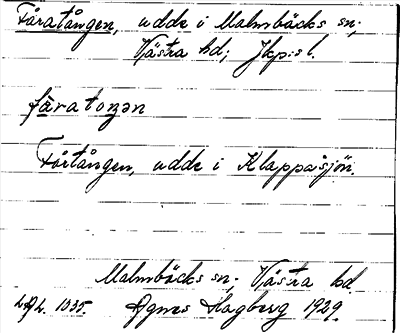 Fåratången, udde i Malmbäcks sn;
Västra hd; Jkp:s l.
fåratoŋən
Fårtången, udde i Klappasjön.
Malmbäcks sn; Västra hd
L.A.L. 1035. Agnes Hagberg 1929.